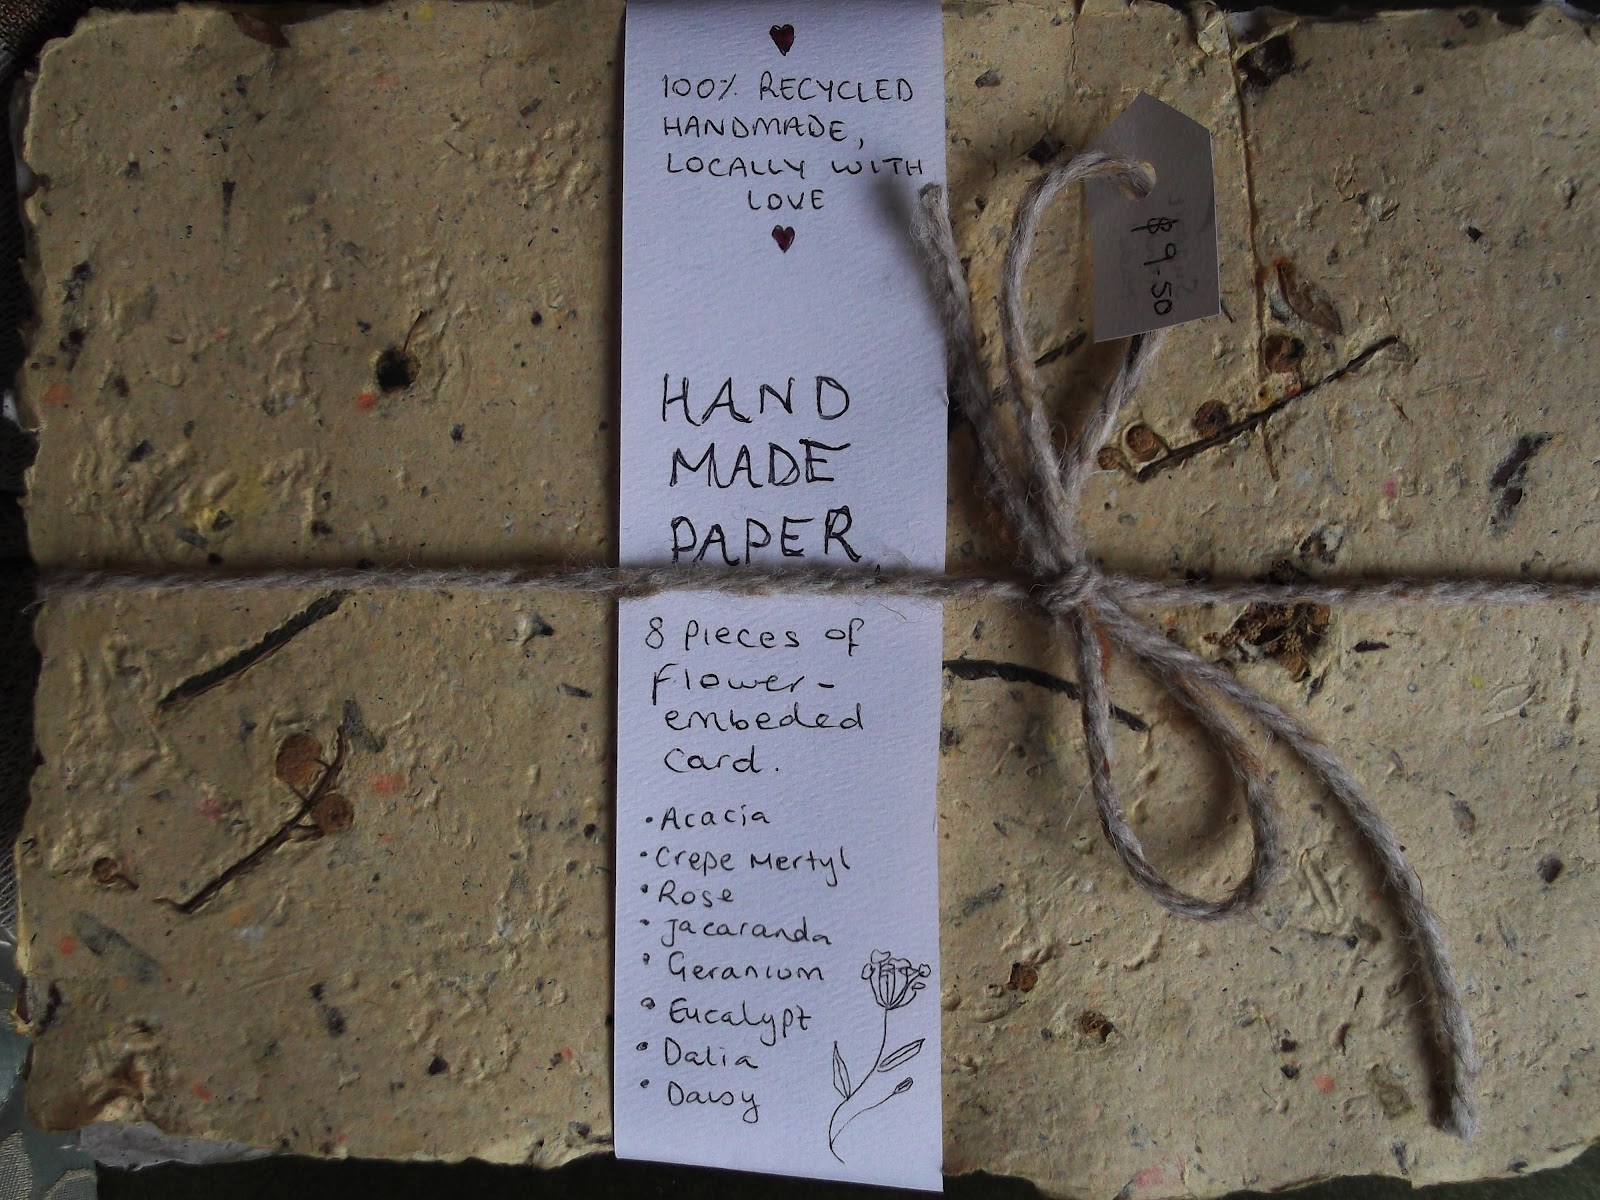 100% RECYCLED
HANDMADE,
LOCALLY WITH
LOVE
$9.50
HAND
MADE
PAPER.
8 Pieces of
flower-
embeded
card.
• Acacia
• Crepe Mertyl
• Rose
• Jacaranda
• Geranium
• Eucalypt
• Dalia
• Daisy